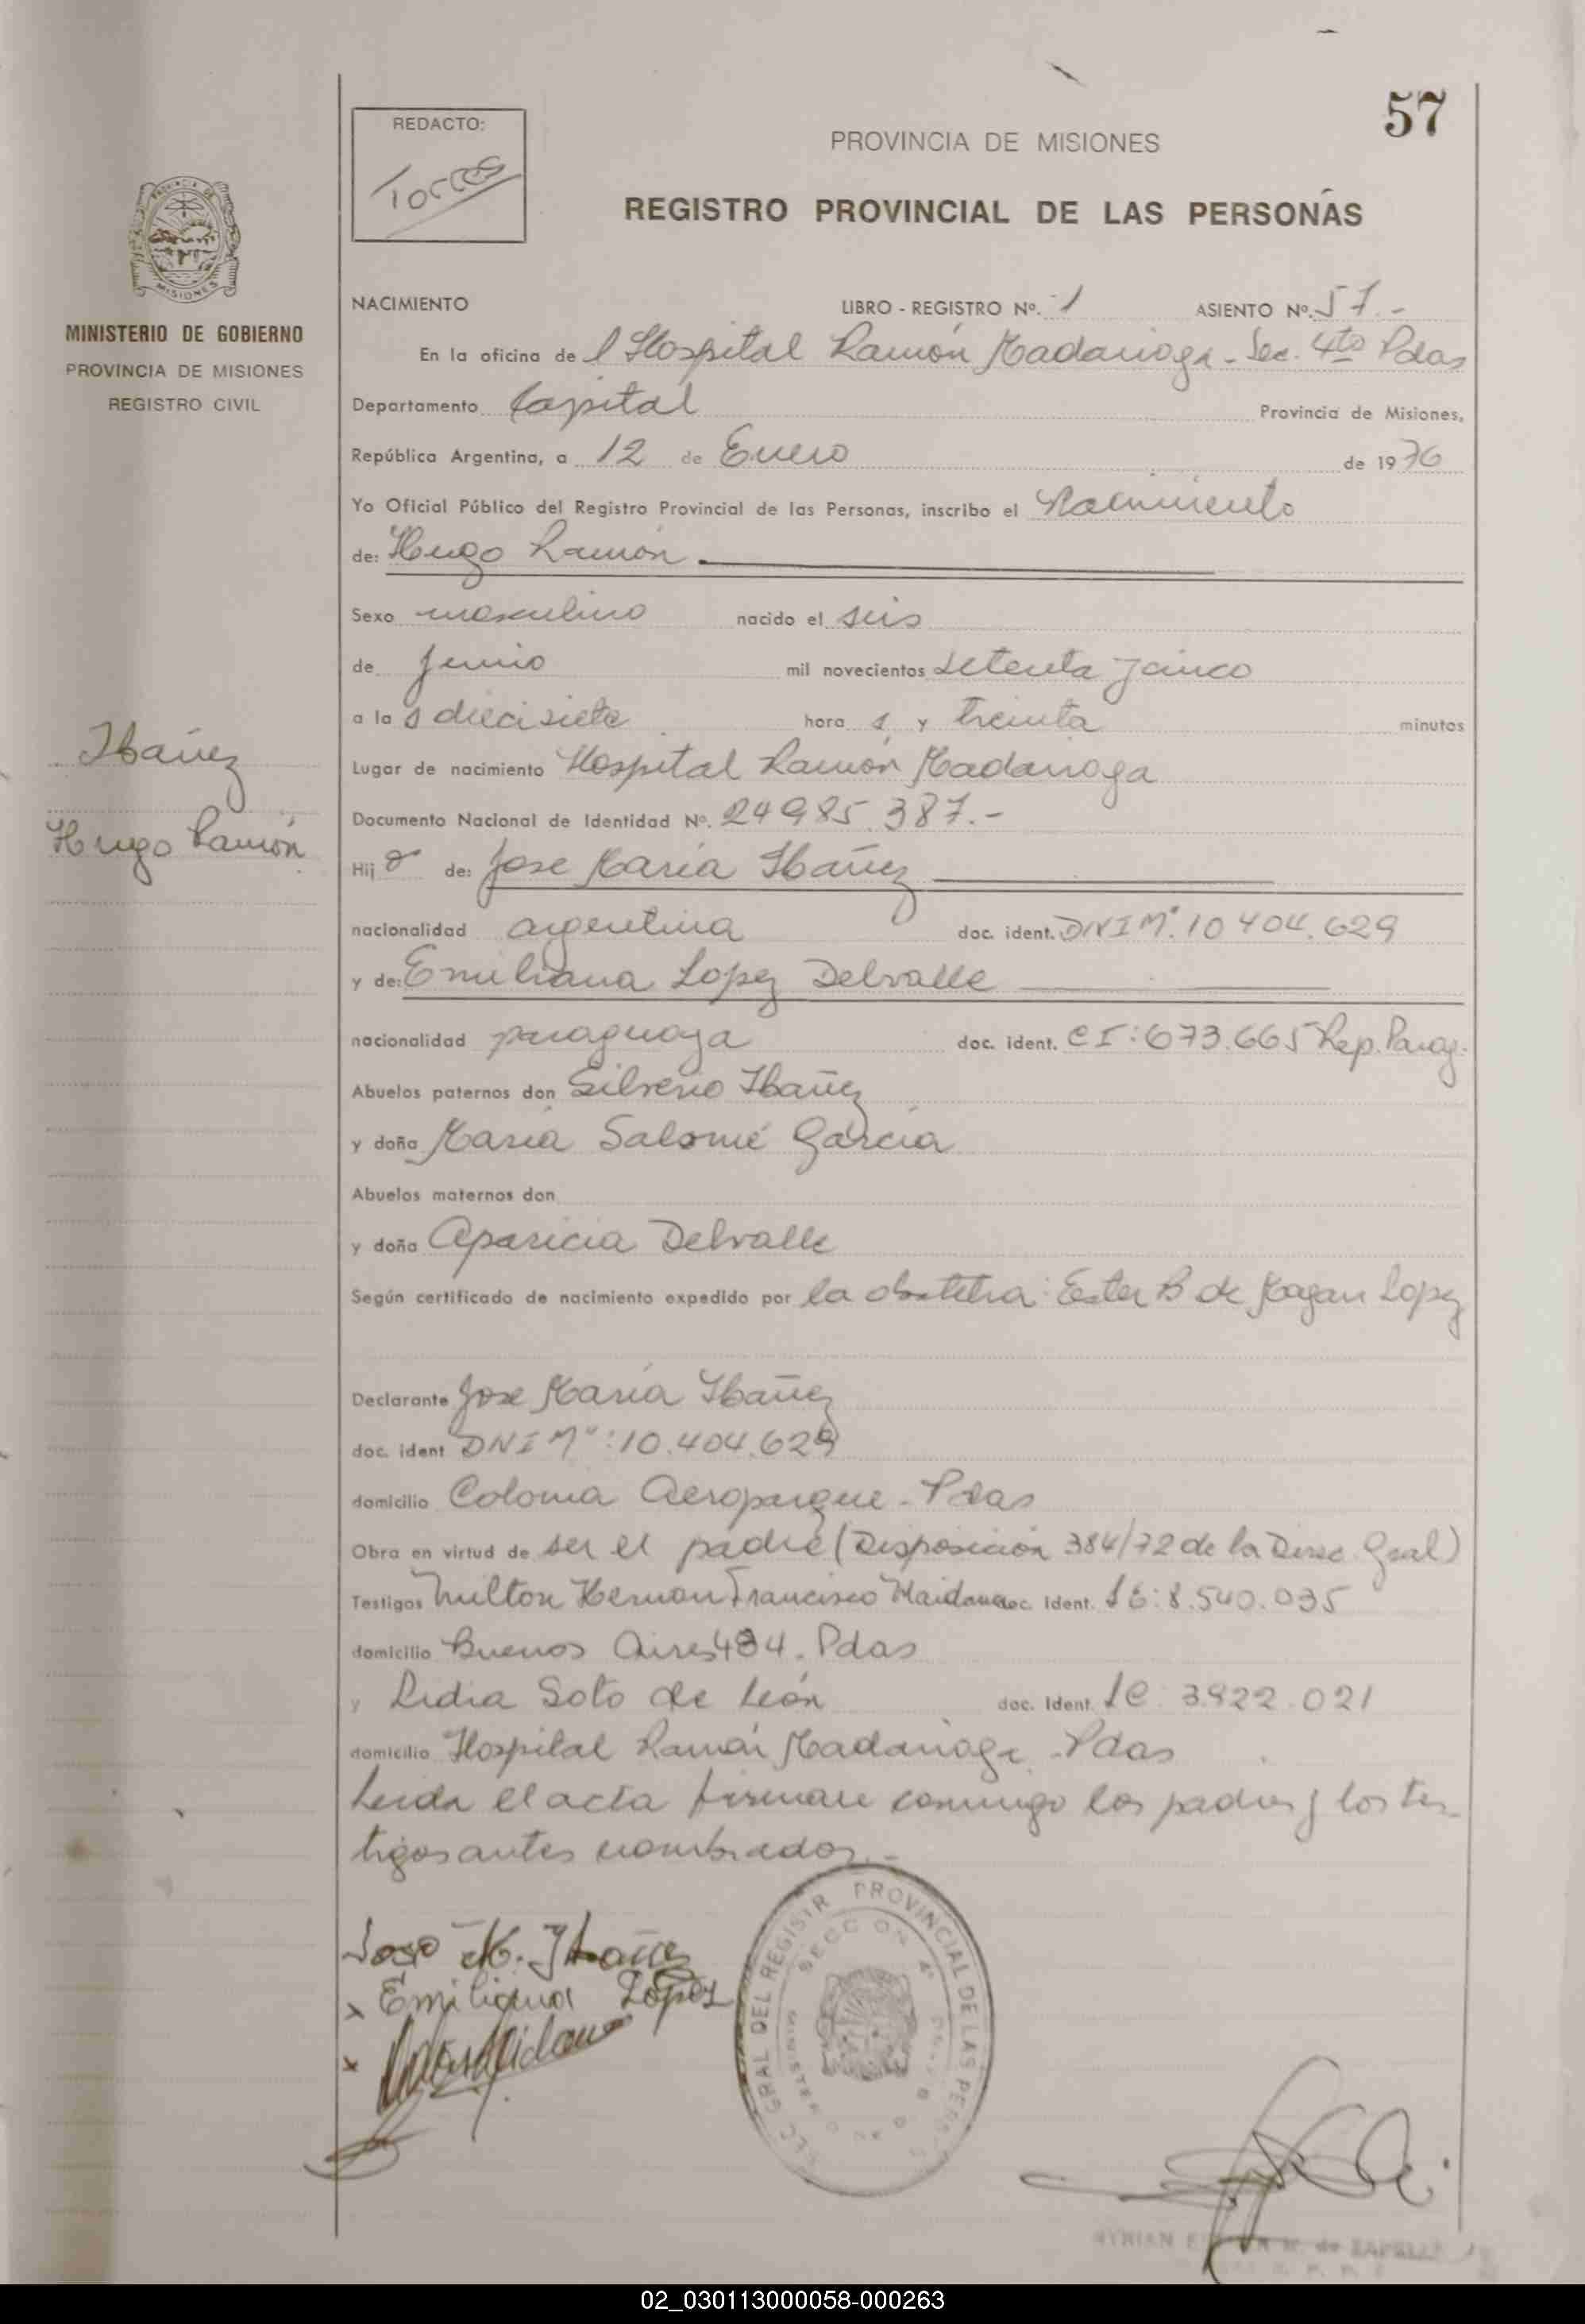 57
REDACTO:
Torres
PROVINCIA DE MISIONES
REGISTRO PROVINCIAL DE LAS PERSONAS
MISIONES
MINISTERIO DE GOBIERNO
PROVINCIA DE MISIONES
REGISTRO CIVIL
Ibañez
Hugo Ramón
NACIMIENTO LIBRO - REGISTRO Nº. 1 ASIENTO Nº. 57.-
En la oficina de l Hospital Ramón Madariaga - Sec. 4ta Pdas
Departamento Capital Provincia de Misiones,
República Argentina, a 12 de Enero de 1976
Yo Oficial Público del Registro Provincial de las Personas, inscribo el Nacimiento
de: Hugo Ramón
Sexo masculino nacido el seis
de Junio mil novecientos setenta y cinco
a la s diecisiete hora s y treinta minutos
Lugar de nacimiento Hospital Ramón Madariaga
Documento Nacional de Identidad Nº. 24985.387.-
Hij o de: Jose María Ibañez
nacionalidad argentina doc. ident. DNI Mº. 10 404.629
y de: Emiliana Lopez Delvalle
nacionalidad paraguaya doc. ident. CI: 673.665 Rep. Parag.
Abuelos paternos don Silverio Ibañez
y doña María Salomé García
Abuelos maternos don
y doña Aparicia Delvalle
Según certificado de nacimiento expedido por la obstetra: Ester B de Magan Lopez
Declarante Jose María Ibañez
doc. ident DNI Mº: 10.404.629
domicilio Colonia Aeroparque - Pdas
Obra en virtud de ser el padre (Disposición 384/72 de la Direc. Gral)
Testigos Milton Hernan Francisco Maidana doc. Ident. 8.540.035
domicilio Buenos Aires 484. Pdas
y Lidia Soto de León doc. Ident. LC 3.922.021
domicilio Hospital Ramón Madariaga - Pdas
Leida el acta firman conmigo los padres y los tes-
tigos antes nombrados.-
Jose M. Ibañez
x Emiliana López
x
SECC GRAL DEL REGISTR PROVINCIAL DE LAS PERS
SECCION 4ª
MINISTERIO
02_030113000058-000263